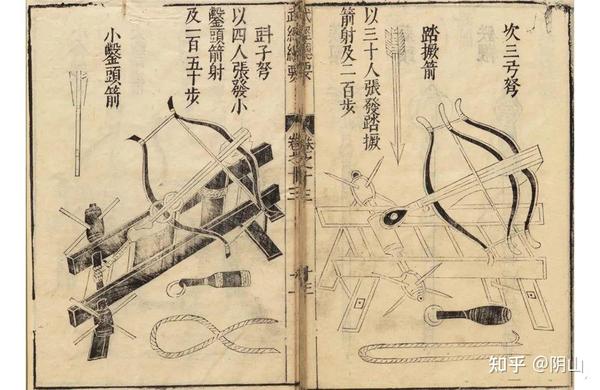 次三弓弩
踏撅箭
以三十人張發踏撅
箭射及二百步
武經總要
卷之十三
㪷子弩
以四人張發小
鑿頭箭射
及一百五十步
小鑿頭箭
知乎 @阴山